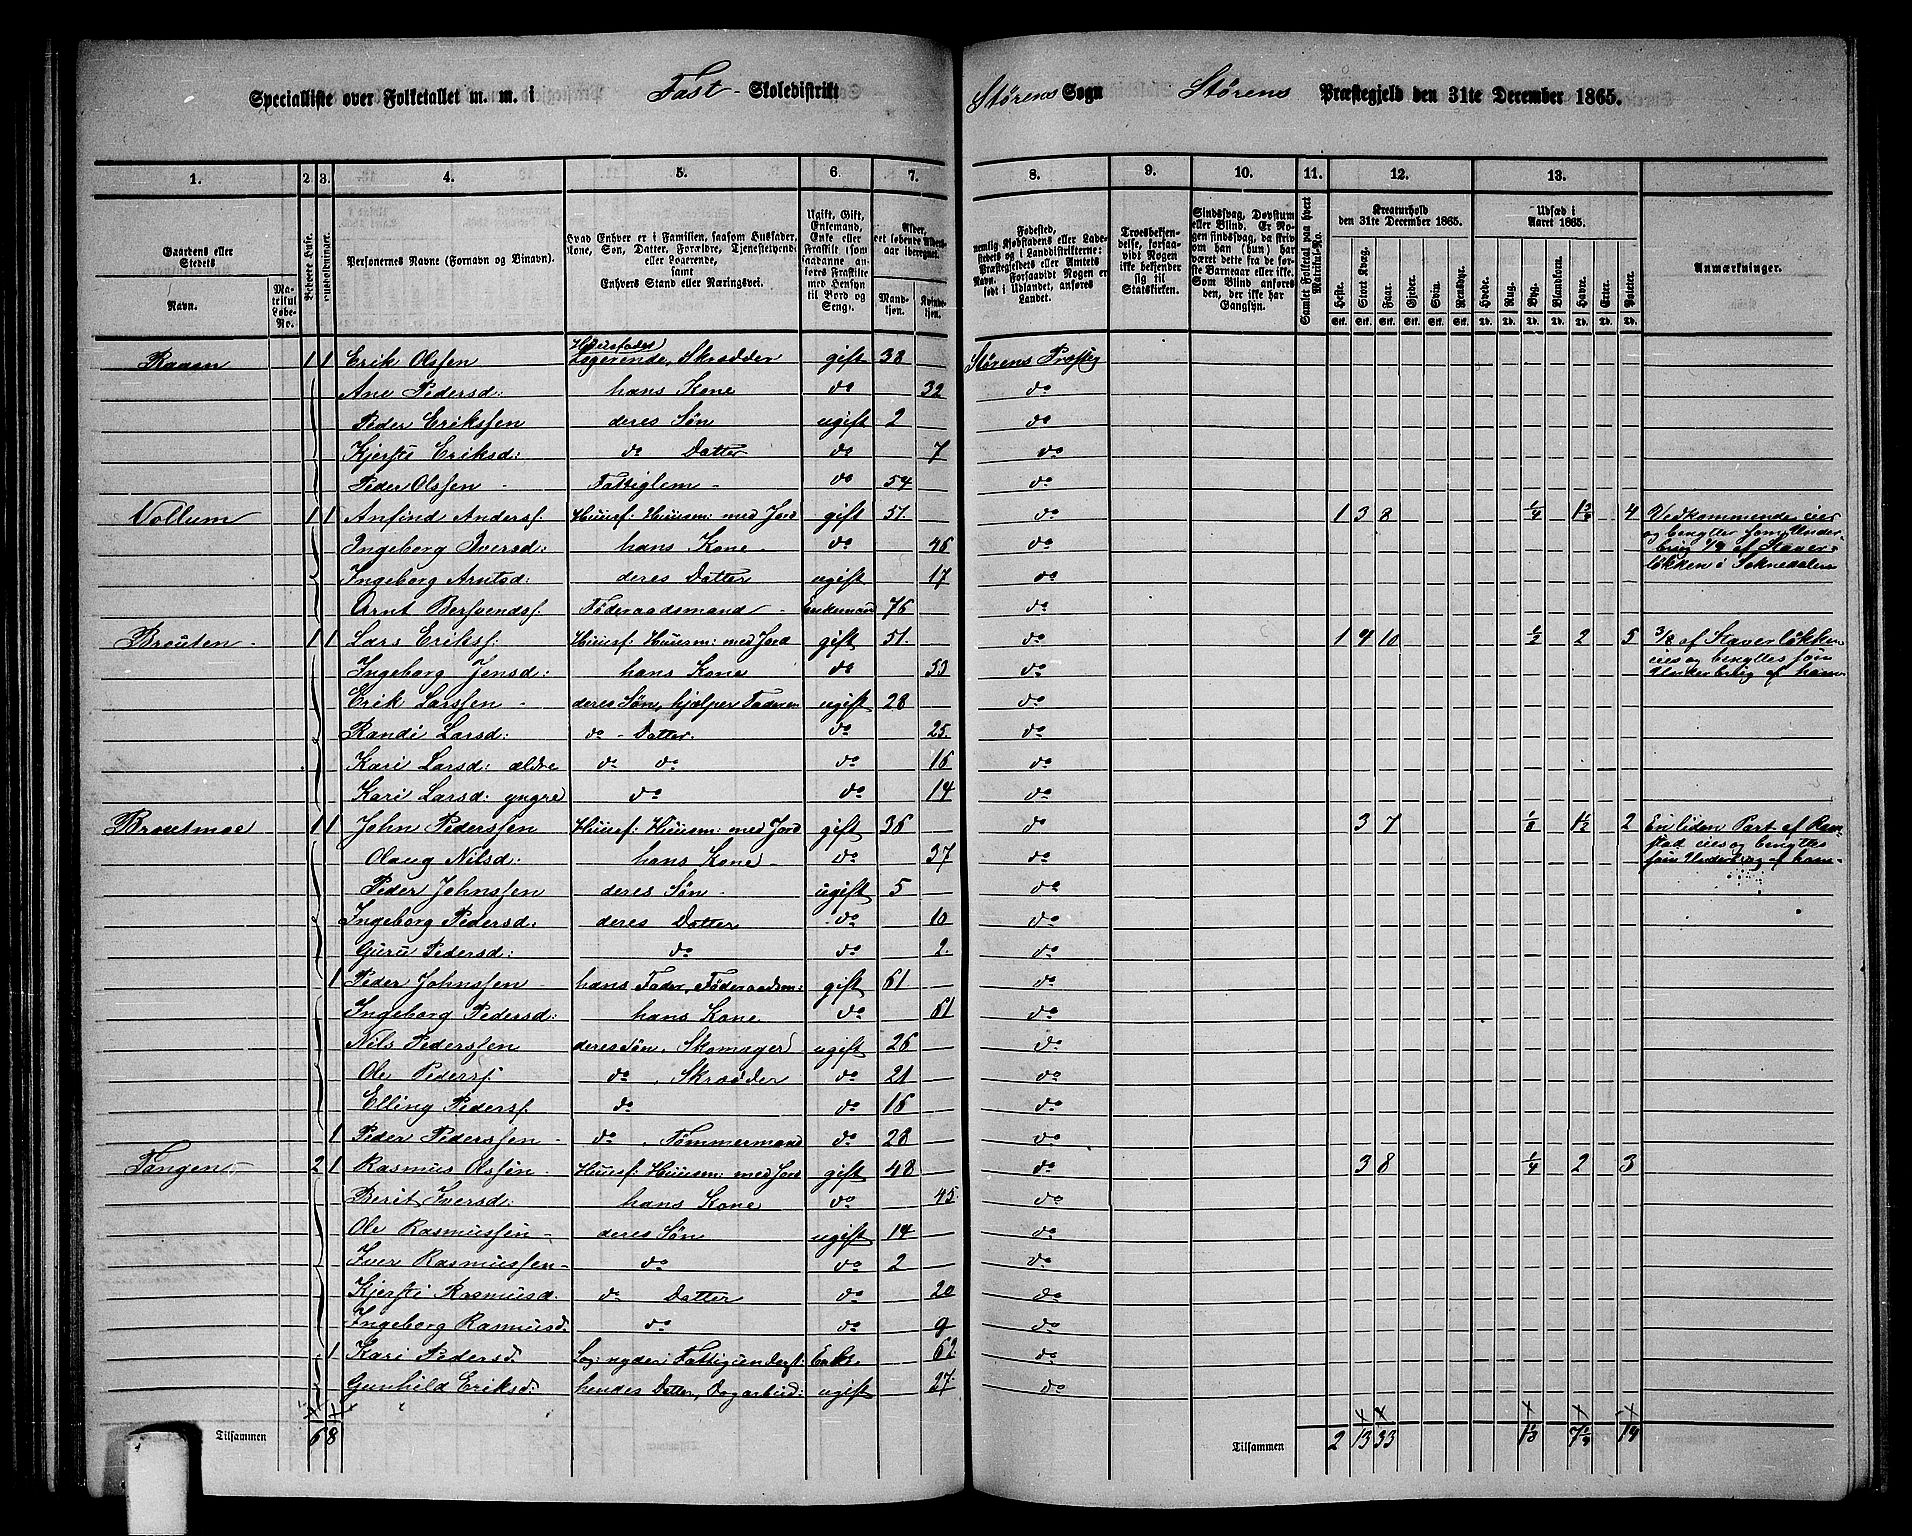 Specialliste over Folketallet m. m. i Fast Skoledistrikt Størens Sogn Størens Præstegjeld den 31te December 1865.
1. 2. 3. 4. 5. 6. 7. 8. 9. 10. 11. 12. 13.
Gaardens eller Stedets Navn. Matrikul Løbe-No. Beboede Huse. Huusholdninger. Personernes Navne (Fornavn og Binavn). Hvad Enhver er i Familien, saasom Husfader, Kone, Søn, Datter, Forældre, Tjenestetyende eller Logerende, samt Enhvers Stand eller Næringsvei. Ugift, Gift, Enkemand, Enke eller Fraskilt Alder, det løbende Aldersaar iberegnet. Mandkjøn. Kvindekjøn. Fødested, Troesbekjendelse, forsaavidt Nogen ikke bekjender sig til Statskirken. Samlet Folketal paa hvert Matrikul-No. Kreaturhold den 31te December 1865. Udsæd i Aaret 1865. Anmærkninger.
Heste. Stort Kvæg. Faar. Gjeder. Sviin. Rensdyr. Hvede. Rug. Byg. Blandkorn. Havre. Erter. Poteter.
Raaen 1 1 Erik Olssen Huusfader Logerende, Skrædder gift 38 Størens Præstg
Ane Pedersd: hans Kone do 32 do
Peder Erikssen deres Søn ugift 2 do
Kjersti Eriksd: do Datter do 7 do
Peder Olssen - Fattiglem - do 54 do
Vollum 1 1 Anfind Andersf. Huusf: Huusm: med Jord gift 51. do 1 3 8 1/4 4 Vedkommende eier
Ingeborg Iversd: hans Kone - do 46 do og benytter som Under-
Ingeborg Arntsd: deres Datter ugift 17 do brug 1/9 af Staver-
løkken i Soknedalen
Arnt Bersvendsf. Føderaadsmand - Enkemand 76 do
Brøuten - 1 1 Lars Eriksf. Huusf: Huusm: med Jord gift 51. do 1 4 10 1/2 2 5 3/8 af Staverløkken
Ingeborg Jensd: hans Kone do 53 do eies og benyttes som
Erik Larssen - deres Søn, hjælper Faderen ugift 28 do Underbrug af ham
Randi Larsd: do - Datter. do 25. do
Kari Larsd: ældre do do do 16 do
Kari Larsd: yngre do do 14 do
Brøutmoe 1 1 John Pederssen Huusf: Huusm: med Jord gift 36 do 3 7 1/8 1 1/2 2 En liden Part af Ram-
Olaug Nilsd: hans Kone - do 37 do stad eies og benyttes
som Underbrug af ham -
Peder Johnssen deres Søn - ugift 5 do
Ingeborg Pedersd: deres Datter do 10 do
Guru Pedersd: do do 2. do
1 Peder Johnssen - hans Fader, Føderaadsm: gift 61 do
Ingeborg Pedersd: hans Kone do 61 do
Nils Pederssen deres Søn, Skomager ugift 26 do
Ole Pedersf. do , Skrædder do 21 do
Elling Pedersf. do do 16 do
1 Peder Pederssen - do , Tømmermand do 28 do
Tangen - 2 1 Rasmus Olssen - Huusf: Huusm: med Jord gift 48 do 3 8 1/4 2 3
Berit Iversd: hans Kone do 45. do
Ole Rasmussen - deres Søn ugift 14 do
Iver Rasmussen - do do 2 do
Kjersti Rasmusd. do Datter do 20 do
Ingeborg Rasmusd. do do 9 do
1 Kari Pedersd. Log: nyder Fattigunderst: Enke. 62. do
Gunhild Eriksd: hendes Datter, Dagarbeid: ugift 27. do
Tilsammen 6 8 Tilsammen 2 13 33 14